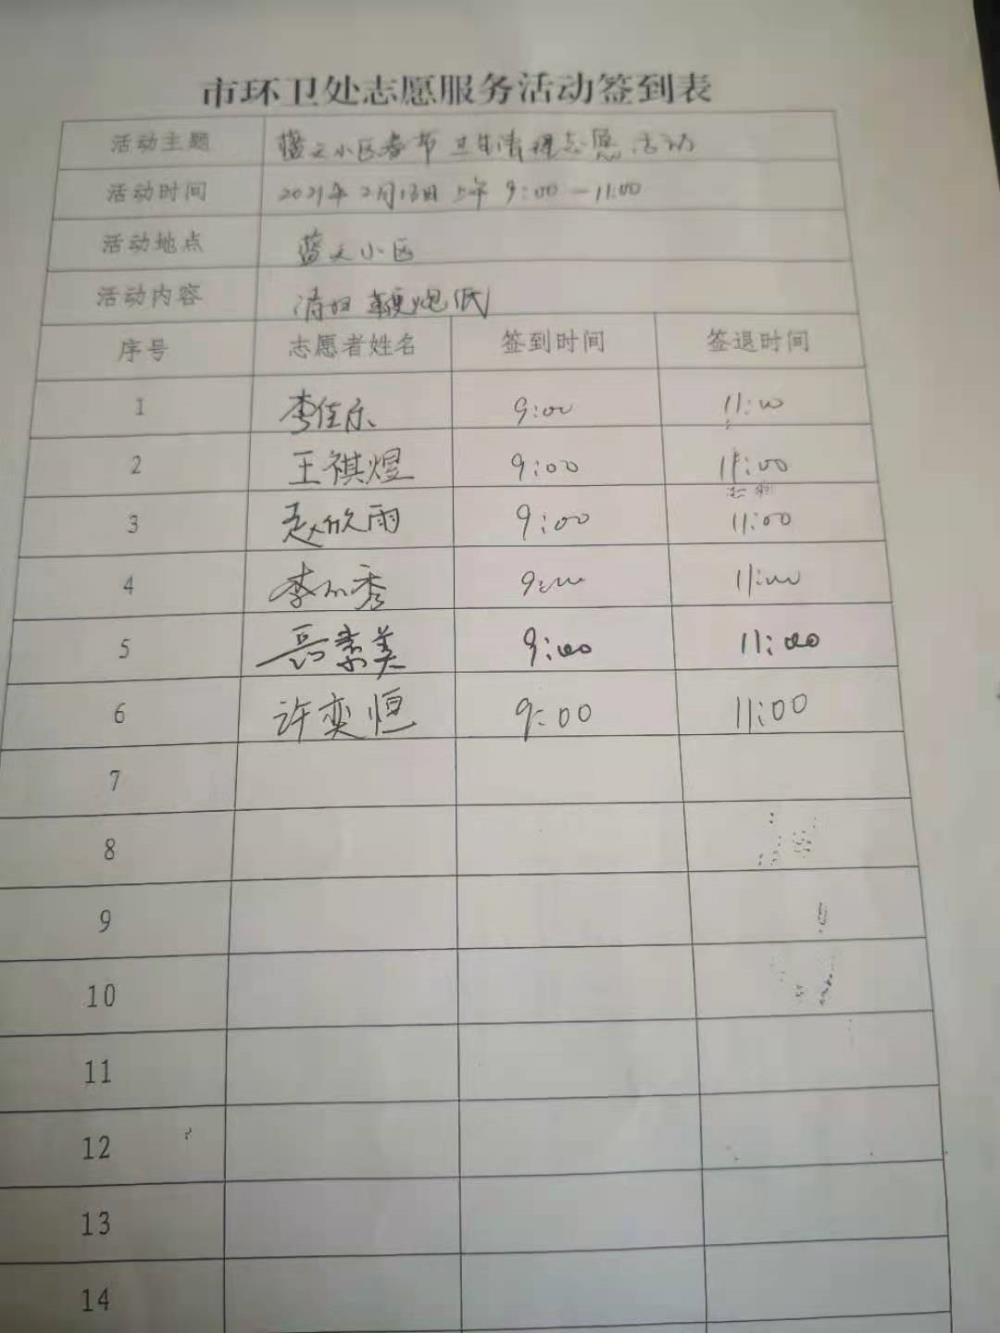 市环卫处志愿服务活动签到表
活动主题 蓝天小区春节卫生清理志愿活动
活动时间 2021年2月13日上午 9:00—11:00
活动地点 蓝天小区
活动内容 清扫鞭炮纸
序号 志愿者姓名 签到时间 签退时间
1 李佳乐 9:00 11:00
2 王祺煜 9:00 11:00
3 赵欣雨 9:00 11:00
4 李秀 9:00 11:00
5 吕素美 9:00 11:00
6 许奕恒 9:00 11:00
7
8
9
10
11
12
13
14